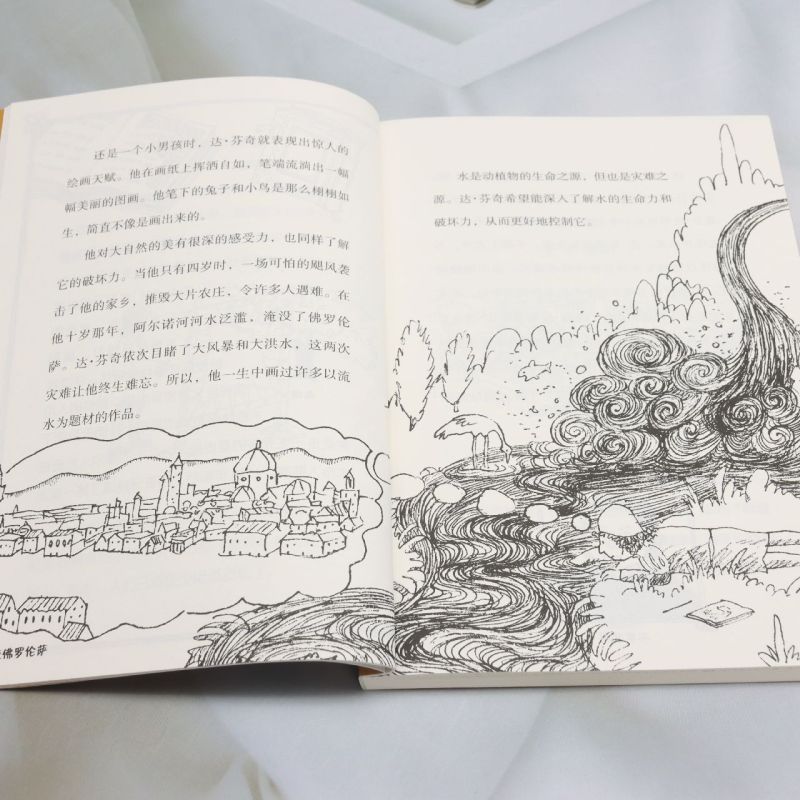 还是一个小男孩时，达·芬奇就表现出惊人的
绘画天赋。他在画纸上挥洒自如，笔端流淌出一幅
幅美丽的图画。他笔下的兔子和小鸟是那么栩栩如
生，简直不像是画出来的。
他对大自然的美有很深的感受力，也同样了解
它的破坏力。当他只有四岁时，一场可怕的飓风袭
击了他的家乡，摧毁大片农庄，令许多人遇难。在
他十岁那年，阿尔诺河河水泛滥，淹没了佛罗伦
萨。达·芬奇依次目睹了大风暴和大洪水，这两次
灾难让他终生难忘。所以，他一生中画过许多以流
水为题材的作品。
佛罗伦萨
水是动植物的生命之源，但也是灾难之
源。达·芬奇希望能深入了解水的生命力和
破坏力，从而更好地控制它。